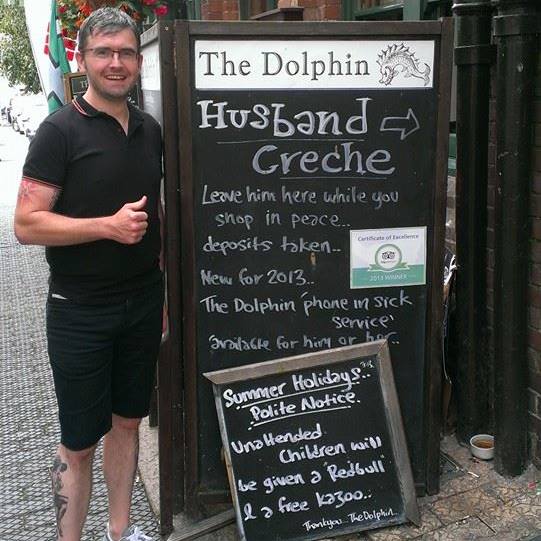 The Dolphin
Husband
Creche
Leave him here while you
shop in peace..
deposits taken..
New for 2013..
The Dolphin 'phone in sick
service'
available for him or her..
Certificate of Excellence
2013 WINNER
Summer Holidays..
Polite Notice.
Unattended
Children will
be given a 'Redbull'
& a free kazoo..
Thankyou... The Dolphin.